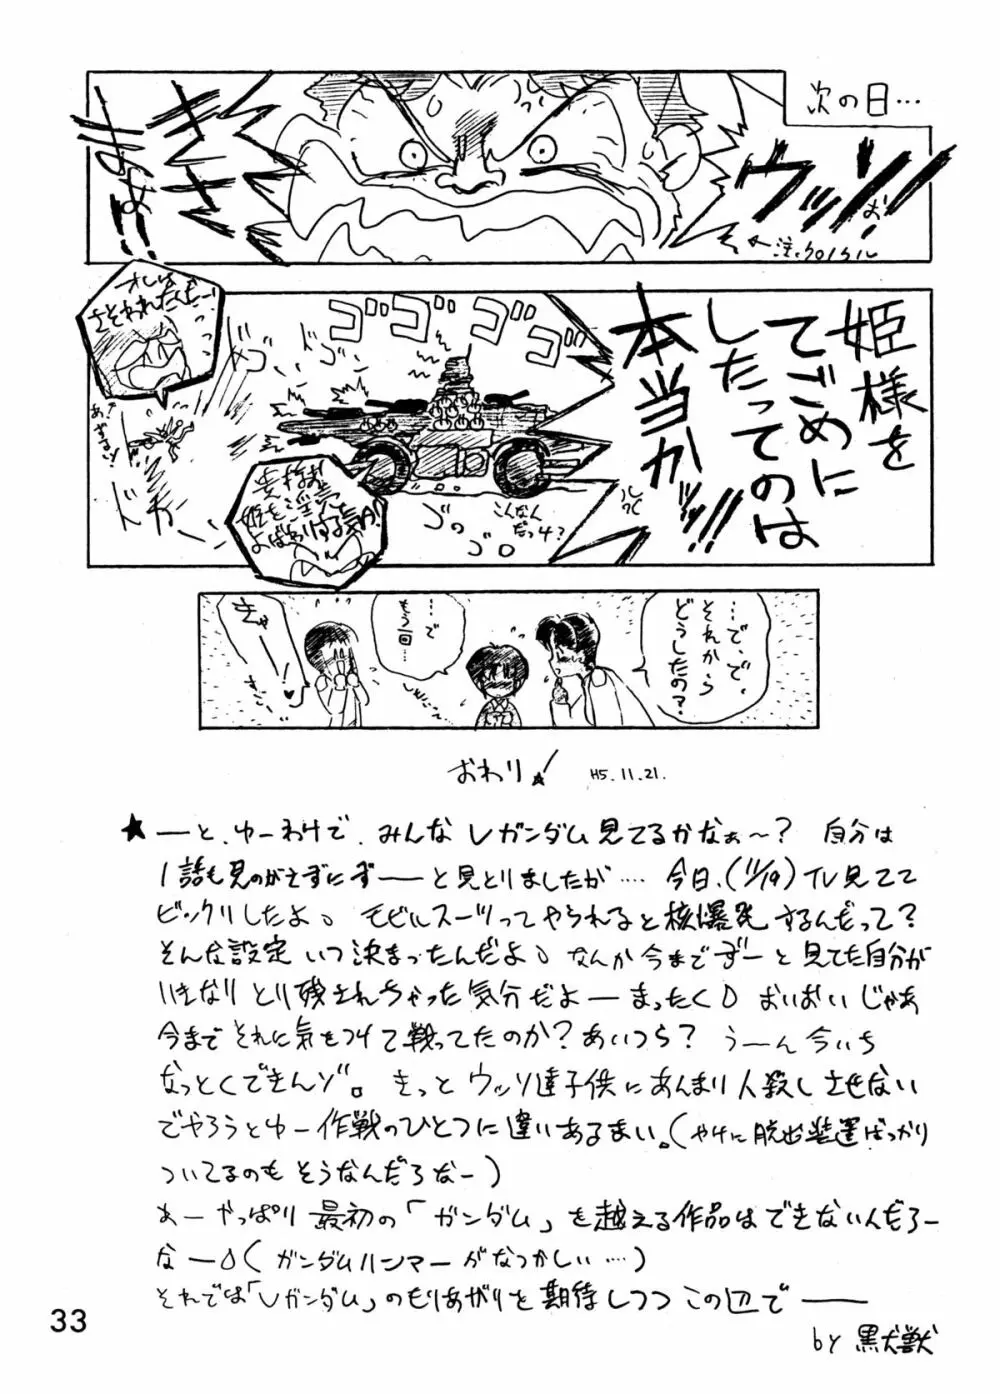 次の日…
ウッソおぉ!!
きさまあぁ!!
←注.クロノクル
姫様を
てごめに
したってのは
本当かッ!!
ゴゴゴゴ
ドゴ
ドカ
オレは
さそわれたんだーっ
こんなん
だっけ?
…で、で、
それから
どうしたの?
…で
もう一回…
きゃーー!♥
おわり! H5.11.21.
★ーと、ゆーわけで、みんな Vガンダム見てるかなぁ〜? 自分は
1話も見のがさずにずーーと見とりましたが…. 今日、(11/19)TV見てて
ビックリしたよ。モビルスーツってやられると核爆発するんだって?
そんな設定いつ決まったんだよ。なんか今までずーと見てた自分が
いきなりとり残されちゃった気分だよーまったく。おいおいじゃあ
今までそれに気をつけて戦ってたのか?あいつら? うーん今いち
なっとくできんゾ。きっとウッソ達子供にあんまり人殺しさせない
でやろうとゆー作戦のひとつに違いあるまい。(やけに脱出装置ばっかり
ついてるのもそうなんだろなー)
あーやっぱり最初の「ガンダム」を越える作品はできないんだろー
なー。(ガンダムハンマーがなつかしい…)
それでは「Vガンダム」のもりあがりを期待しつつこの辺でーーー
by 黒犬獣
33